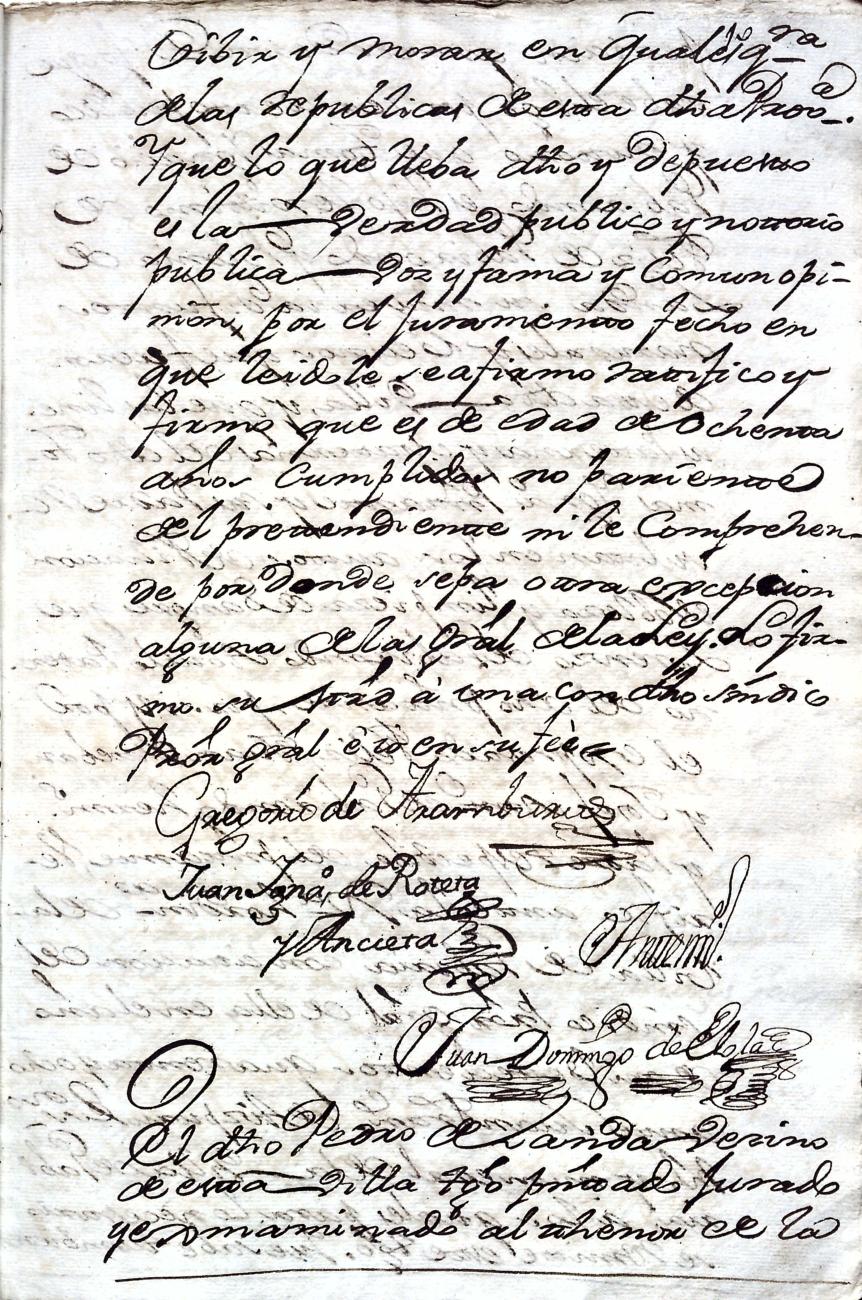 Vibir y morar en qualesiqra
de las repúblicas de esta dha Prova.
Y que lo que lleba dho y depuesto
es la verdad publico y nottorio
publica voz y fama y Comun opi-
nion, por el Juramento fecho en
que leidole se afirmo ratifico y
firmo que es de edad de Ochenta
años Cumplidos no pariente
del prettendiente ni le Comprehen-
de por donde sepa otra excepcion
alguna de las grâl de la Ley. Lo fir-
mo. su mrd à una con dho síndico
Prôr grâl è io en su fèe
Gregorio de Aramburu
Juan Ignaº de Roteta
y Ancieta
Antemi.
Juan Domingo de Elola
El dho Pedro de Landa Vecino
de esta Villa tgô pnttado Jurado
y exsaminado al thenor de la